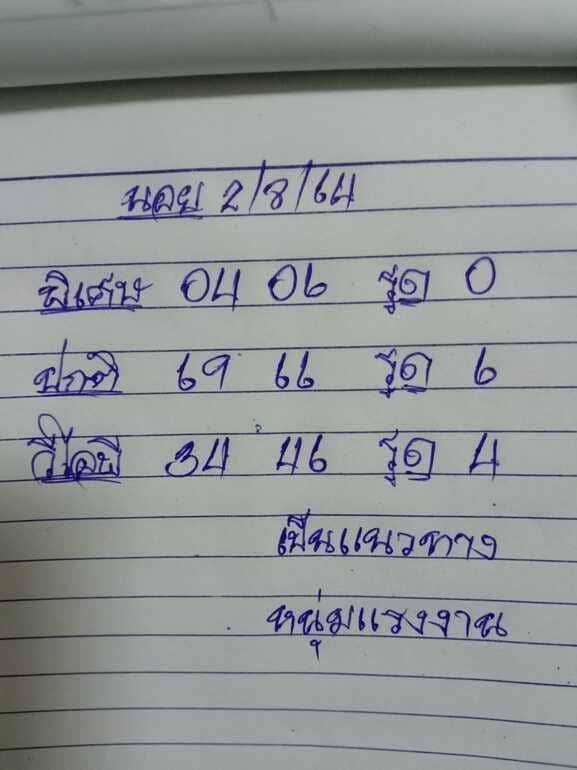 นอย 2/8/64
พิเศษ 04 06 รูด 0
ปกติ 69 66 รูด 6
วีไอพี 34 46 รูด 4
เป็นแนวทาง
หนุ่มแรงงาน